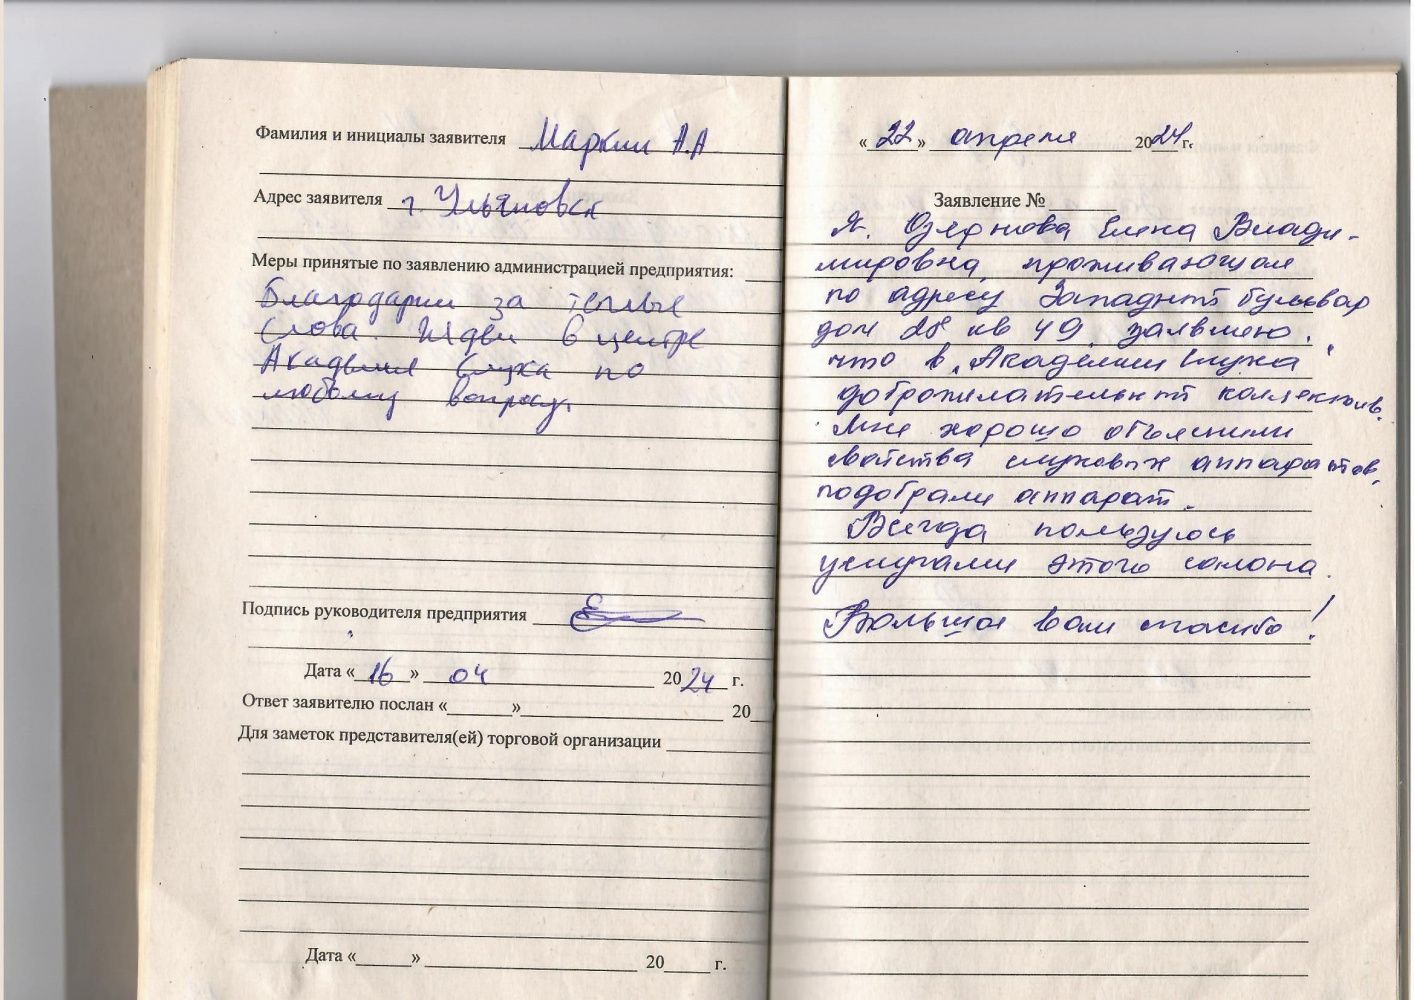 Фамилия и инициалы заявителя Маркин А.А
Адрес заявителя г. Ульяновск
Меры принятые по заявлению администрацией предприятия:
Благодарим за теплые
слова. Ждём в центре
Академия Слуха по
любому вопросу.
Подпись руководителя предприятия
Дата «16» 04 2024 г.
Ответ заявителю послан «______»__________ 20__
Для заметок представителя(ей) торговой организации
Дата «______» __________ 20____ г.
«22» апреля 2024г.
Заявление №
Я. Озернова Елена Влади-
мировна, проживающая
по адресу Западный бульвар
дом 28 кв 49, заявляю,
что в "Академии Слуха"
доброжелательный коллектив.
Мне хорошо объяснили
свойства слуховых аппаратов,
подобрали аппарат.
Всегда пользуюсь
услугами этого салона.
Большое вам спасибо!